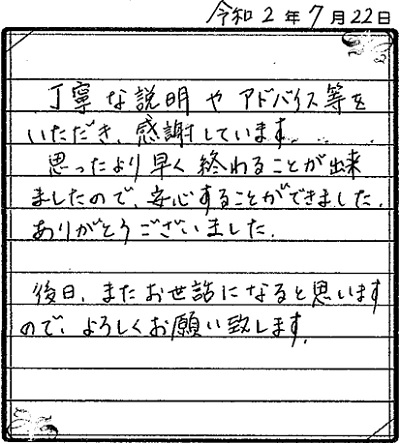 令和2年7月22日
丁寧な説明やアドバイス等を
いただき、感謝しています。
思ったより早く終わることが出来
ましたので、安心することができました。
ありがとうございました。
後日、またお世話になると思います
ので、よろしくお願い致します。